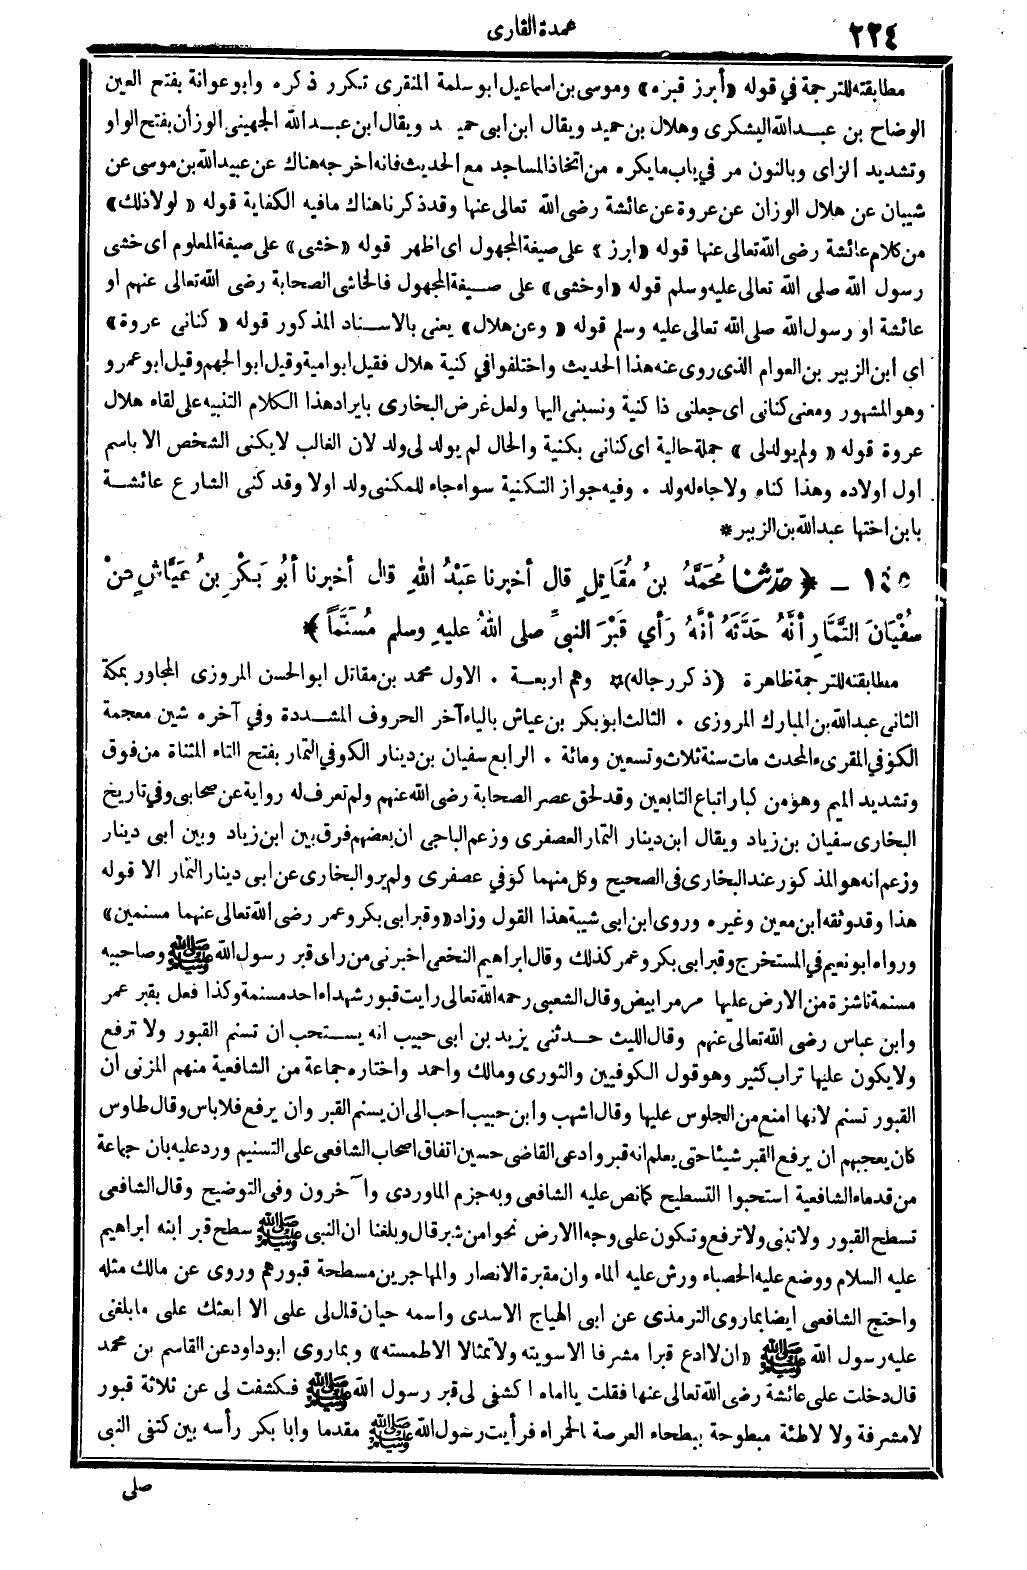 ٢٢٤
عمدة القارى
مطابقته للترجمة في قوله «أبرز قبره» وموسى بن اسماعيل ابو سلمة المنقرى تكرر ذكره وابو عوانة بفتح العين
الوضاح بن عبد الله اليشكرى وهلال بن حميد ويقال ابن ابى حميد ويقال ابن عبد الله الجهينى الوزان بفتح الواو
وتشديد الزاى وبالنون مر في باب ما يكره من اتخاذ المساجد مع الحديث فانه اخرجه هناك عن عبيد الله بن موسى عن
شيبان عن هلال الوزان عن عروة عن عائشة رضى الله تعالى عنها وقد ذكرنا هناك ما فيه الكفاية قوله «لولا ذلك»
من كلام عائشة رضى الله تعالى عنها قوله «ابرز» على صيغة المجهول اى اظهر قوله «خشى» على صيغة المعلوم اى خشى
رسول الله صلى الله تعالى عليه وسلم قوله «او خشى» على صيغة المجهول فالخاشى الصحابة رضى الله تعالى عنهم او
عائشة او رسول الله صلى الله تعالى عليه وسلم قوله «وعن هلال» يعنى بالاسناد المذكور قوله «كنانى عروة»
اي ابن الزبير بن العوام الذى روى عنه هذا الحديث واختلفوا في كنية هلال فقيل ابو امية وقيل ابو الجهم وقيل ابو عمرو
وهو المشهور ومعنى كنانى اى جعلنى ذا كنية ونسبنى اليها ولعل غرض البخارى بايراد هذا الكلام التنبيه على لقاء هلال
عروة قوله «ولم يولد لى» جملة حالية اى كنانى بكنية والحال لم يولد لى ولد لان الغالب لا يكنى الشخص الا باسم
اول اولاده وهذا كناه ولا جاء له ولد . وفيه جواز التكنية سواء جاء للمكنى ولد اولا وقد كنى الشارع عائشة
بابن اختها عبد الله بن الزبير *
١٤٥ ـ ﴿ حدّثنا مُحَمَّدُ بنُ مُقَاتِلٍ قال أخبرنا عَبْدُ اللهِ قال أخبرنا أبُو بَكْرِ بنُ عَيَّاشٍ عنْ
سفْيَانَ التَّمَّارِ أنَّهُ حَدَّثَهُ أنَّهُ رَأي قَبْرَ النبىِّ صلى اللهُ عليهِ وسلم مُسَنَّماً ﴾
مطابقته للترجمة ظاهرة (ذكر رجاله)* وهم اربعة . الاول محمد بن مقاتل ابو الحسن المروزى المجاور بمكة
الثانى عبد الله بن المبارك المروزى . الثالث ابو بكر بن عياش بالياء آخر الحروف المشددة وفي آخره شين معجمة
الكوفي المقرىء المحدث مات سنة ثلاث وتسعين ومائة . الرابع سفيان بن دينار الكوفي التمار بفتح التاء المثناة من فوق
وتشديد الميم وهو من كبار اتباع التابعين وقد لحق عصر الصحابة رضى الله عنهم ولم تعرف له رواية عن صحابى وفي تاريخ
البخارى سفيان بن زياد ويقال ابن دينار التمار العصفرى وزعم الباجى ان بعضهم فرق بين ابن زياد وبين ابى دينار
وزعم انه هو المذكور عند البخارى فى الصحيح وكل منهما كوفي عصفرى ولم يرو البخارى عن ابى دينار التمار الا قوله
هذا وقد وثقه ابن معين وغيره وروى ابن ابى شيبة هذا القول وزاد «وقبر ابى بكر وعمر رضى الله تعالى عنهما مسنمين»
ورواه ابو نعيم في المستخرج وقبر ابى بكر وعمر كذلك وقال ابراهيم النخعى اخبرنى من راى قبر رسول الله ﷺ وصاحبيه
مسنمة ناشزة من الارض عليها مرمر ابيض وقال الشعبى رحمه الله تعالى رايت قبور شهداء احد مسنمة وكذا فعل بقبر عمر
وابن عباس رضى الله تعالى عنهم وقال الليث حدثنى يزيد بن ابى حبيب انه يستحب ان تسنم القبور ولا ترفع
ولا يكون عليها تراب كثير وهو قول الكوفيين والثورى ومالك واحمد واختاره جماعة من الشافعية منهم المزنى ان
القبور تسنم لانها امنع من الجلوس عليها وقال اشهب وابن حبيب احب الى ان يسنم القبر وان يرفع فلا باس وقال طاوس
كان يعجبهم ان يرفع القبر شيئا حتى يعلم انه قبر وادعى القاضى حسين اتفاق اصحاب الشافعى على التسنيم ورد عليه بان جماعة
من قدماء الشافعية استحبوا التسطيح كما نص عليه الشافعى وبه جزم الماوردى وآخرون وفى التوضيح وقال الشافعى
تسطح القبور ولا تبنى ولا ترفع وتكون على وجه الارض نحوا من شبر قال وبلغنا ان النبى ﷺ سطح قبر ابنه ابراهيم
عليه السلام ووضع عليه الحصباء ورش عليه الماء وان مقبرة الانصار والمهاجرين مسطحة قبورهم وروى عن مالك مثله
واحتج الشافعى ايضا بما روى الترمذى عن ابى الهياج الاسدى واسمه حيان قال لى على الا ابعثك على ما بلغنى
عليه رسول الله ﷺ «ان لا ادع قبرا مشرفا الا سويته ولا تمثالا الا طمسته» وبما روى ابو داود عن القاسم بن محمد
قال دخلت على عائشة رضى الله تعالى عنها فقلت يا اماه اكشفى لى قبر رسول الله ﷺ فكشفت لى عن ثلاثة قبور
لا مشرفة ولا لاطئة مبطوحة ببطحاء العرصة الحمراء فرأيت رسول الله ﷺ مقدما وابا بكر رأسه بين كتفى النبى
صلى